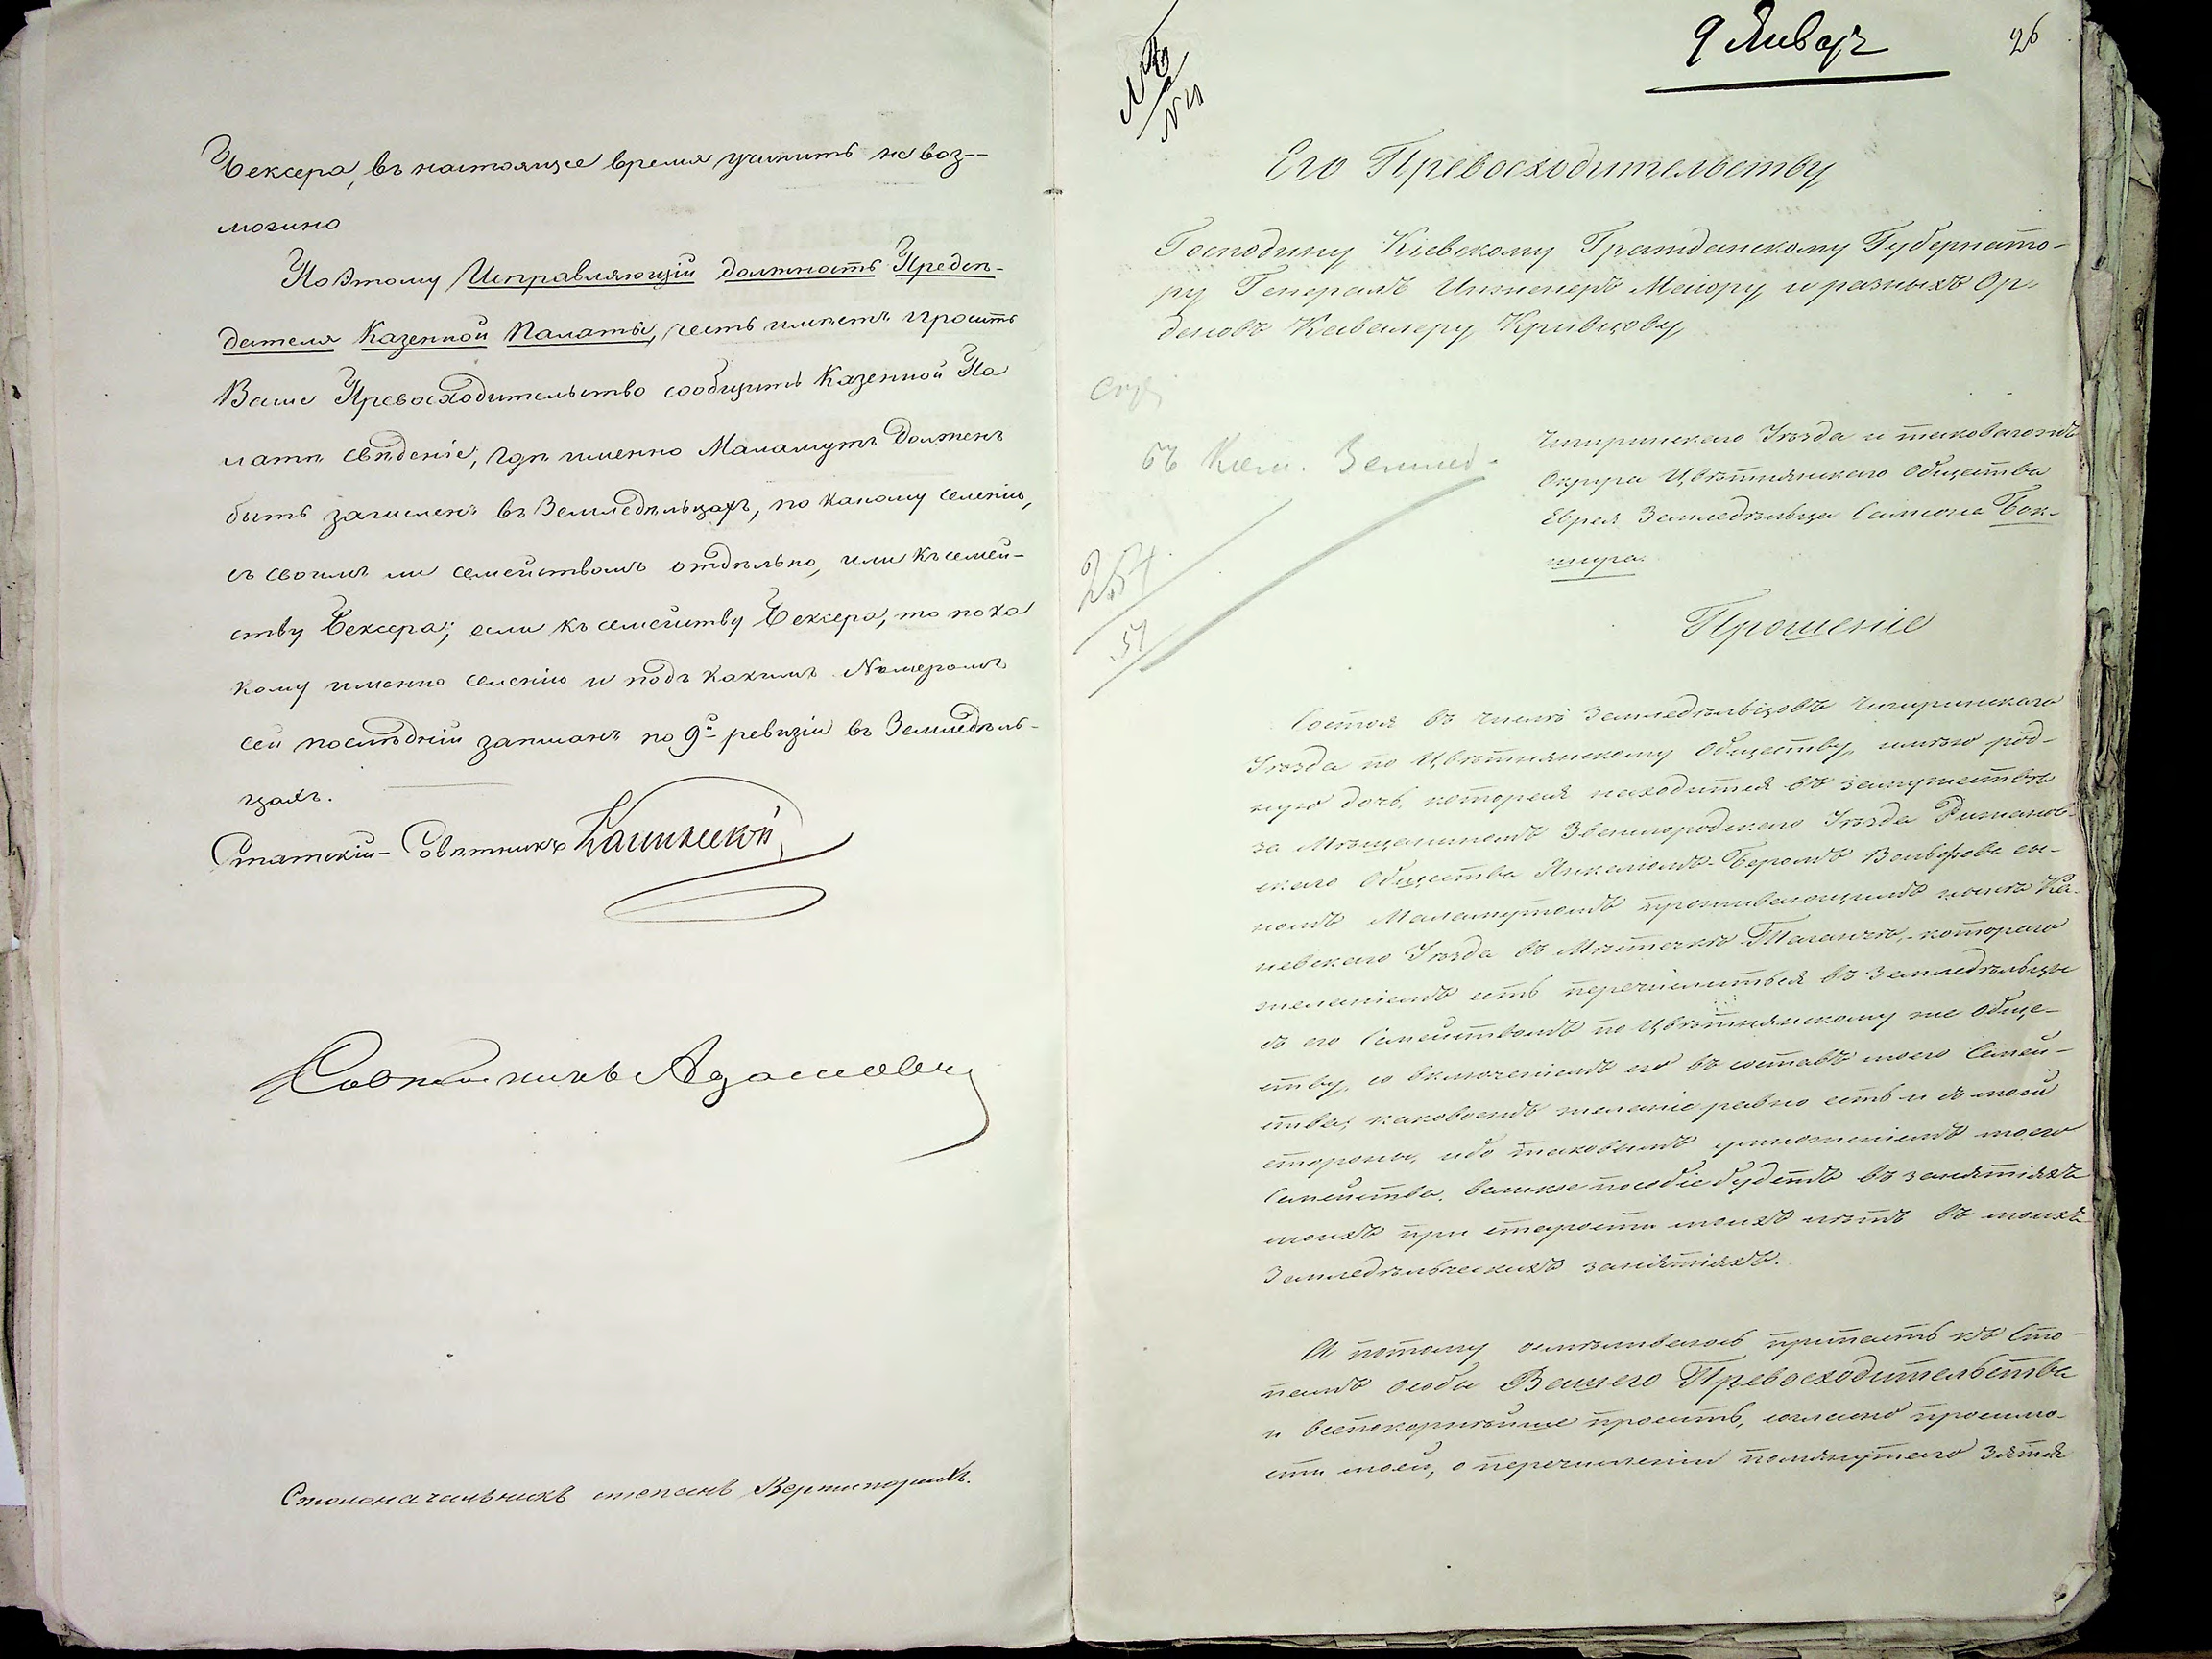 Бексера, въ настоящее время учинить не воз-
можно
Поэтому Исправляющій должность Предсѣ-
дателя Казенной Палаты, честь имѣетъ просить
Ваше Превосходительство сообщить Казенной Па
латѣ свѣденіе, гдѣ именно Маламутъ долженъ
быть зачисленъ въ Земледѣльцахъ, по какому селенію,
съ своимъ ли семействомъ отдѣльно, или къ семей-
ству Бексера; если къ семейству Бексера, то по ка
кому именно селенію и подъ какимъ Номеромъ
сей послѣдній записанъ по 9й ревизіи въ Земледѣль-
цахъ.
Статскій Совѣтникъ
Совѣтникъ
Столоначальникъ степанъ
9 Январ
26
Его Превосходительству
Господину Кіевскому Гражданскому Губернато-
ру Генералъ Инженеръ Маіору, и разныхъ Ор-
деновъ Кавалеру, Кривцову,
въ Зеллед.
257
57
Чигиринскаго Уѣзда и таковагожъ
Округа Цвѣтнянскаго Общества
Еврея Земледѣльца Самсона Бок-
шера.
Прошеніе
Состоя въ числѣ Земледѣльцовъ Чигиринскаго
Уѣзда по Цвѣтнянскому Обществу, имѣю род-
ную дочь, которая находится въ замужествѣ
за Мѣщаниномъ Звенигородскаго Уѣзда Рижанов-
скаго Общества Янкелемъ-Беромъ Вольфова сы-
номъ Маламутомъ проживающимъ нынѣ Ка-
невскаго Уѣзда въ Мѣстечкѣ Таганчѣ, котораго
желаніемъ есть перечислиться въ Земледѣльцы
съ его Семействомъ по Цвѣтнянскому же Обще-
ству, со включеніемъ его въ составъ моего Семей-
ства, каковоежъ желаніе равно есть и съ моей
стороны, ибо таковымъ умноженіемъ моего
Семейства, великое пособіе будетъ въ занятіяхъ
моихъ при старости моихъ лѣтъ въ моихъ
Земледѣльческихъ занятіяхъ.
А потому осмѣливаюсь припасть къ Сто-
памъ особы Вашего Превосходительства
и всепокорнѣйше просить, согласно просимо-
сти моей, о перечисленіи помянутаго Зятя